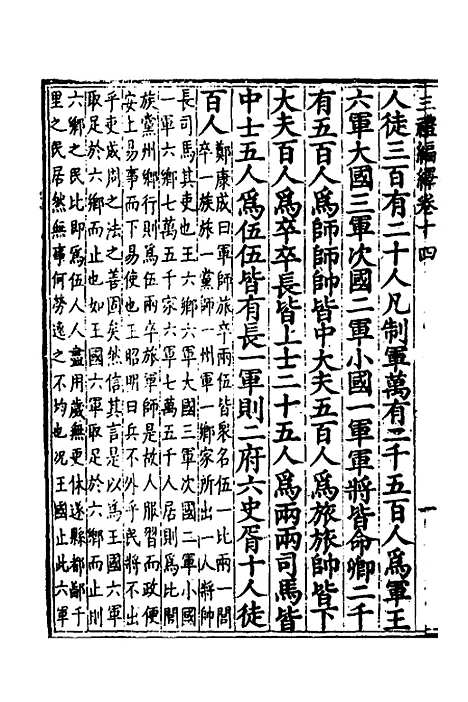 三禮編繹卷十四 一
人徒三百有二十人凡制軍萬有二千五百人爲軍王
六軍大國三軍次國二軍小國一軍軍將皆命卿二千
有五百人爲師師帥皆中大夫五百人爲旅旅帥皆下
大夫百人爲卒卒長皆上士二十五人爲兩兩司馬皆
中士五人爲伍伍皆有長一軍則二府六史胥十人徒
百人
鄭康成曰軍師旅卒兩伍皆衆名伍一比兩一閭
卒一族旅一黨師一州軍一鄉家所出一人將帥
長司馬其吏也王六鄉六軍大國三軍次國二軍小國
一軍六鄉七萬五千家六軍七萬五千人居則爲比閭
族黨州鄉行則爲伍兩卒旅軍師是故人服習而政便
安上易事而下易使也王昭明曰兵不外乎民將不出
乎吏成周之法之善固矣然信其言是以爲王國六軍
取足於六鄉而止也如王國六軍取足於六鄉而止則
六鄉之民比即爲伍人人盡用歲無更休遂縣都鄙千
里之民居然無事何勞逸之不均也况王國止此六軍